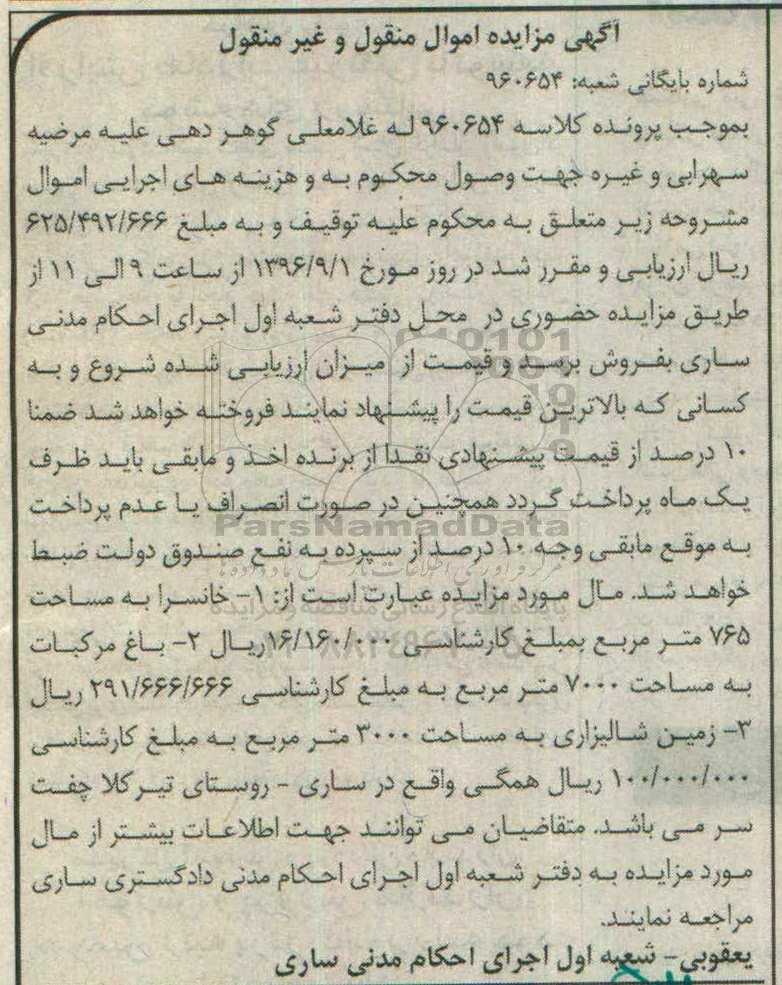 آگهی مزایده اموال منقول و غیر منقول
شماره بایگانی شعبه: ۹۶۰۶۵۴
بموجب پرونده کلاسه ۹۶۰۶۵۴ له غلامعلی گوهر دهی علیه مرضیه
سهرابی و غیره جهت وصول محکوم به و هزینه های اجرایی اموال
مشروحه زیر متعلق به محکوم علیه توقیف و به مبلغ ۶۲۵/۴۹۲/۶۶۶
ریال ارزیابی و مقرر شد در روز مورخ ۱۳۹۶/۹/۱ از ساعت ۹ الی ۱۱ از
طریق مزایده حضوری در محل دفتر شعبه اول اجرای احکام مدنی
ساری بفروش برسد و قیمت از میزان ارزیابی شده شروع و به
کسانی که بالاترین قیمت را پیشنهاد نمایند فروخته خواهد شد ضمنا
۱۰ درصد از قیمت پیشنهادی نقدا از برنده اخذ و مابقی باید ظرف
یک ماه پرداخت گردد همچنین در صورت انصراف یا عدم پرداخت
ParsNamadData
به موقع مابقی وجه ۱۰ درصد از سپرده به نفع صندوق دولت ضبط
خواهد شد. مال مورد مزایده عبارت است از: ۱- خانسرا به مساحت
۷۶۵ متر مربع بمبلغ کارشناسی ۱۶/۱۶۰/۰۰۰ریال ۲- باغ مرکبات
به مساحت ۷۰۰۰ متر مربع به مبلغ کارشناسی ۲۹۱/۶۶۶/۶۶۶ ریال
۳- زمین شالیزاری به مساحت ۳۰۰۰ متر مربع به مبلغ کارشناسی
۱۰۰/۰۰۰/۰۰۰ ریال همگی واقع در ساری - روستای تیرکلا چفت
سر می باشد. متقاضیان می توانند جهت اطلاعات بیشتر از مال
مورد مزایده به دفتر شعبه اول اجرای احکام مدنی دادگستری ساری
مراجعه نمایند.
یعقوبی- شعبه اول اجرای احکام مدنی ساری